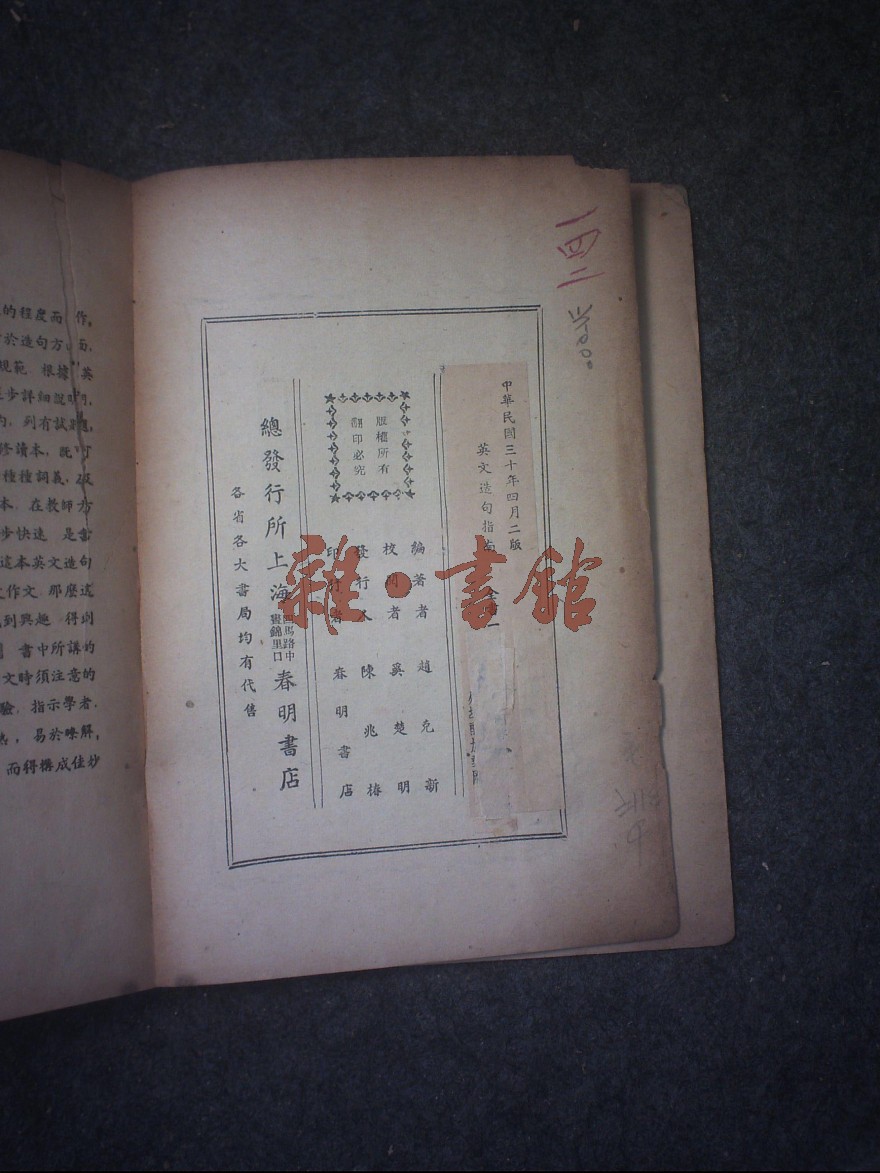 一四二
中華民國三十年四月二版
英文造句指南
編著者 趙允新
校閱者 奚楚明
發行人 陳兆椿
印行者 春明書店
版權所有
翻印必究
總發行所上海四馬路中晝錦里口春明書店
各省各大書局均有代售
雜·書館
的程度而作。
於造句方面,
規範 根據“英
步詳細說明,
內,列有試題,
修讀本,既可
種種詞義,及
本,在教師方
步快速 是當
這本英文造句
作文 那麼這
到興趣 得到
書中所講的
文時須注意的
驗,指示學者,
熟,易於味解,
而得構成佳妙